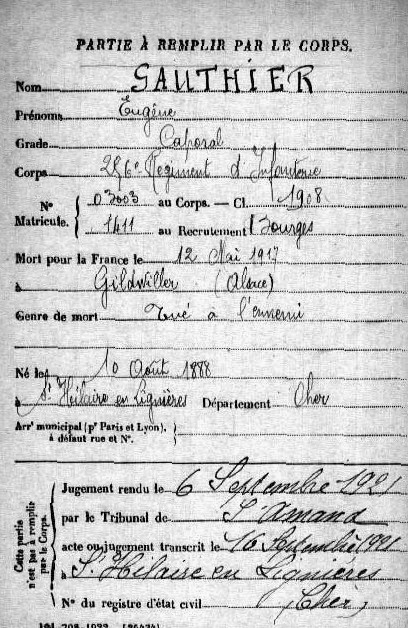 PARTIE À REMPLIR PAR LE CORPS.
Nom GAUTHIER
Prénoms Eugène
Grade Caporal
Corps 256e Régiment d'Infanterie
N° Matricule. 03003 au Corps. — Cl. 1908
1411 au Recrutement Bourges
Mort pour la France le 12 Mai 1917
à Gildwiller (Alsace)
Genre de mort Tué à l'ennemi
Né le 10 Août 1888
à St Hilaire en Lignières Département Cher
Arrt municipal (pr Paris et Lyon), à défaut rue et N°.
Cette partie n'est pas à remplir par le Corps.
Jugement rendu le 6 Septembre 1921
par le Tribunal de St Amand
acte ou jugement transcrit le 16 Septembre 1921
à St Hilaire en Lignières
N° du registre d'état civil (Cher)